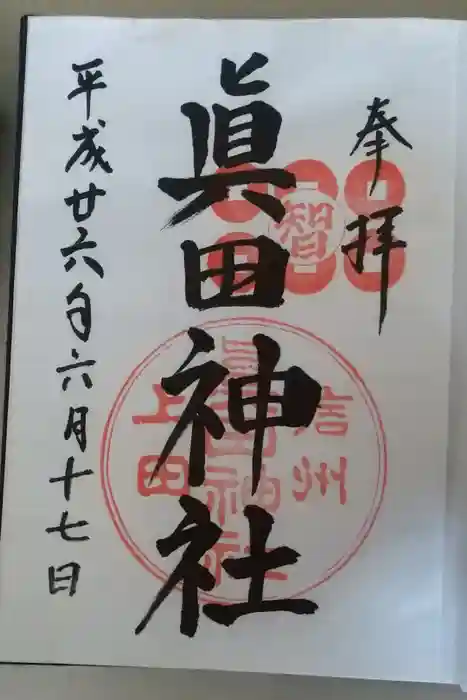 奉拝
智
眞田神社
信州
眞田神社
上田
平成廿六年六月十七日